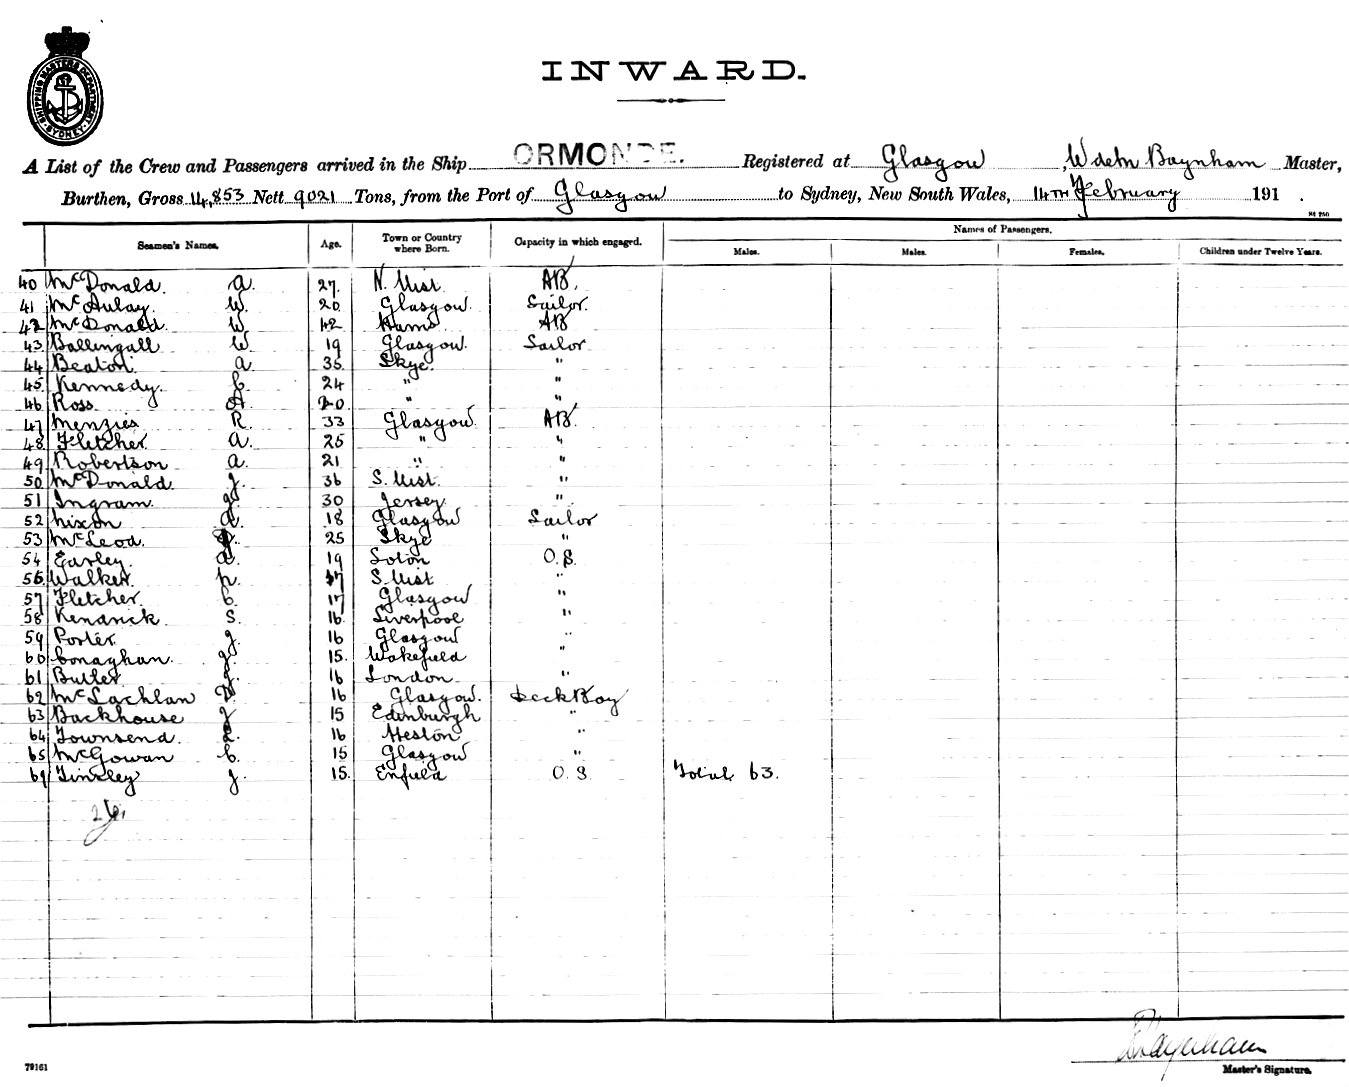 SHIPPING MASTERS DEPARTMENT SYDNEY
INWARD.
A List of the Crew and Passengers arrived in the Ship ORMONDE. Registered at Glasgow, W de M Baynham Master,
Burthen, Gross 14,853 Nett 9021 Tons, from the Port of Glasgow to Sydney, New South Wales, 14TH February 191 .
St 250
Seamen's Names. Age. Town or Country where Born. Capacity in which engaged. Names of Passengers.
Males. Males. Females. Children under Twelve Years.
40 McDonald A. 27. N. Uist AB.
41 McAulay. W. 20. Glasgow. Sailor.
42 McDonald. W. 42 AB
43 Ballingall W. 19 Glasgow. Sailor
44 Beaton. A. 35. Skye. "
45. Kennedy. C. 24 " "
46 Ross. 20 " "
47 Menzies R. 33 Glasgow. AB.
48 Fletcher A. 25 " "
49 Robertson A. 21 " "
50 McDonald. J. 36 S. Uist. "
51 Ingram. J. 30 Jersey. "
52 Nixon A. 18 Glasgow Sailor
53 McLeod. 25 Skye "
54 Earley. A. 19 Soton O.S.
56. Walker. P. 17 S. Uist "
57 Fletcher. C. 17 Glasgow "
58 Kendrick S. 16. Liverpool "
59 Porter. J. 16 Glasgow "
60 Conaghan. J. 15. Wakefield "
61 Butler J. 16 London "
62 McLachlan D. 16 Glasgow. Deck Boy
63 Backhouse J 15 Edinburgh "
64 Townsend. L. 16 Heston "
65 McGowan C. 15 Glasgow "
69 Tinsley J. 15. Enfield O.S. Total 63.
Baynham
Master's Signature.
79161